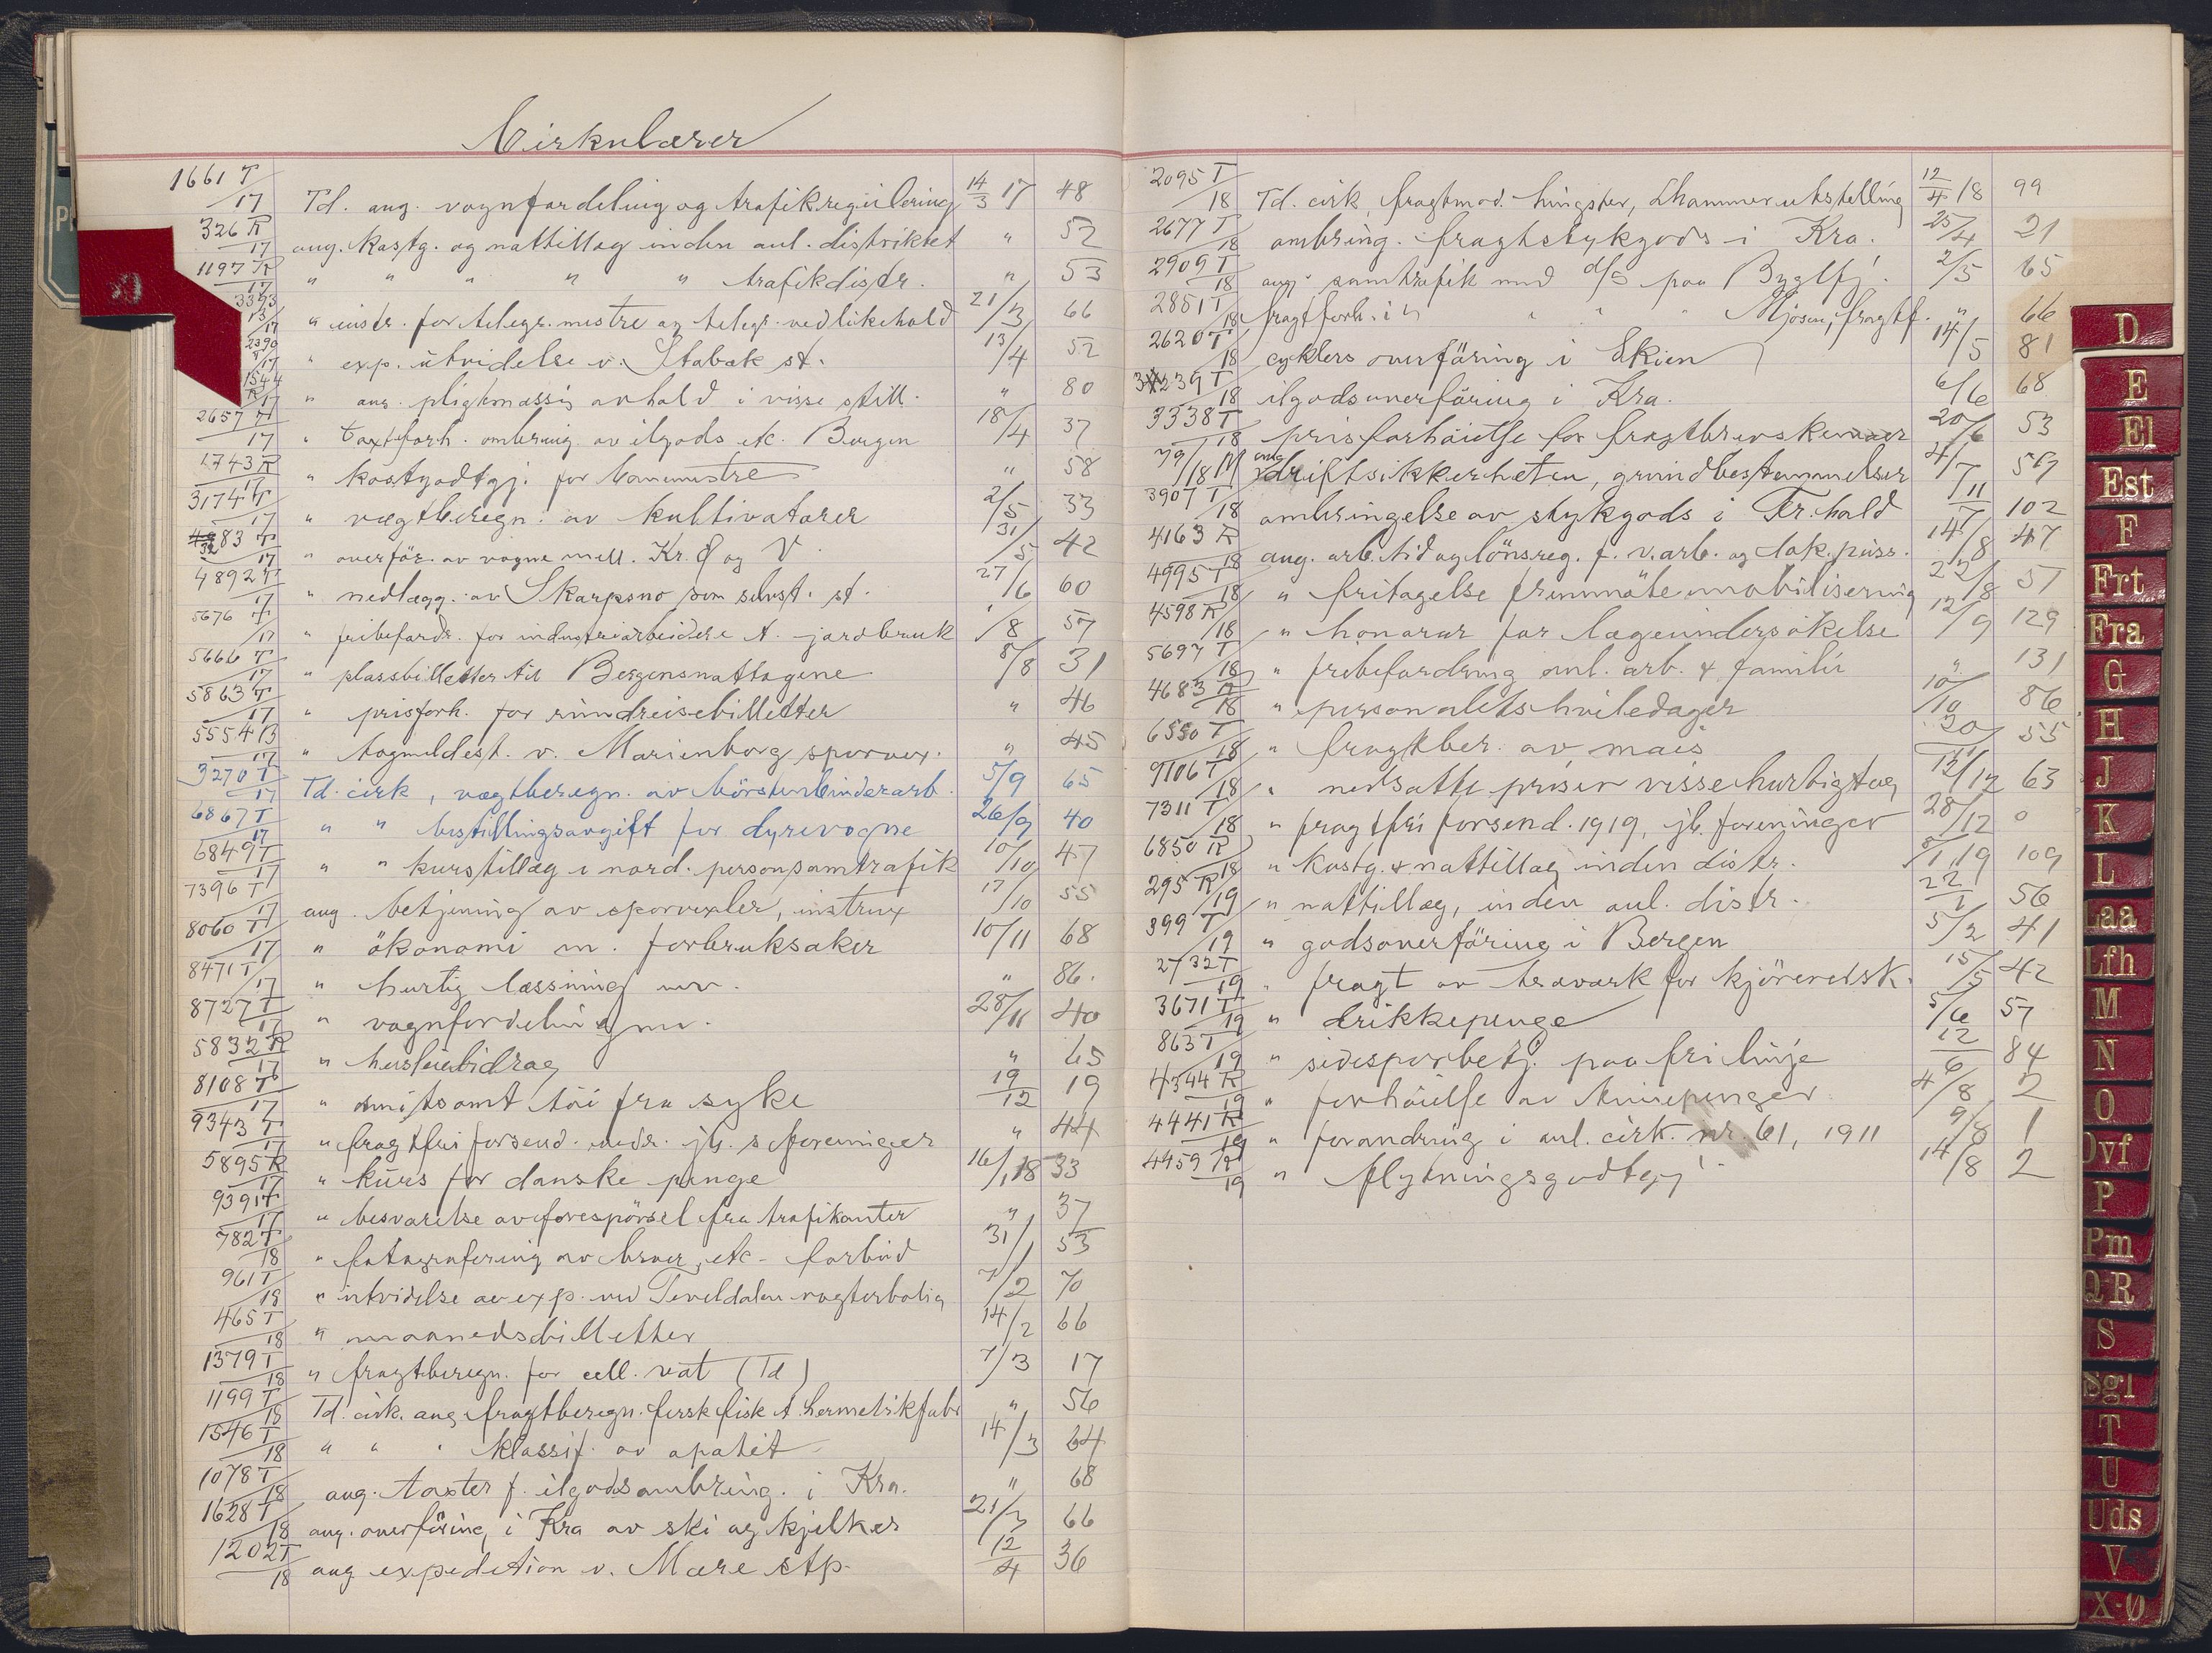 Cirkulærer
1661 T/17 Td. ang. vognfordeling og trafikregulering 14/3 17 48
326 R/17 ang. kostg. og nattillæg inden anl. distriktet " 52
1197 R/17 " " " " " trafikdistr. " 53
3393 13/17 " instr. for telegr. mestre og telegr. vedlikehold 21/3 66
2390 8/17 " exp. utvidelse v. Stabæk st. 13/4 52
1544 R/17 " ang. pligtmæssig avhold i visse still. " 80
2657 T/17 " taxtforh. ombring. av ilgods etc. Bergen 18/4 37
1743 R/17 " kostgodtgj. for banemestre " 58
3174 T/17 " vægtberegn. av kultivatorer 2/5 33
3283 T/17 " overför. av vogne mell. Kr. Ø og V. 31/5 42
4892 T/17 " nedlægg. av Skarpsno som selvst. st. 27/6 60
5676 T/17 " fribefordr. for industriarbeidere t. jordbruk 1/8 57
5666 T/17 " plassbilletter til Bergensnattogene 8/8 31
5863 T/17 " prisforh. for rundreisebilletter " 46
5554 B/17 " togmeldest. v. Marienborg sporvex. " 45
3270 T/17 Td. cirk, vægtberegn. av börstenbinderarb. 5/9 65
6867 T/17 " " bestillingsavgift for dyrevogne 26/9 40
6849 T/17 " " kurstillæg i nord. personsamtrafik 10/10 47
7396 T/17 ang. betjening av sporvexler, instrux 17/10 55
8060 T/17 " ökonomi m. forbruksaker 10/11 68
8471 T/17 " hurtig læssning mv. " 86.
8727 T/17 " vognfordeling mv. 28/11 40
5832 R/17 " husleiebidrag " 65
8108 T/17 " smitsomt töi fra syke 19/12 19
9343 T/17 " fragtfri forsend. vedr. jb.s foreninger " 44
5895 R/17 " kurs for danske penge 16/1 18 33
9391 T/17 " besvarelse av forespörsel fra trafikanter " 37
782 T/18 " fotografering av broer, etc - forbud 31/1 53
961 T/18 " utvidelse av exp. ved Teveldalen vogterbolig 7/2 70
465 T/18 " maanedsbilletter 14/2 66
1379 T/18 " fragtberegn. for cell. vat (Td) 7/3 17
1199 T/18 Td. cirk. ang. fragtberegn. fersk fisk t. hermetikfabr " 56
1546 T/18 " " " klassif. av apatit 14/3 64
1078 T/18 ang. taxter f. ilgodsombring. i Kra. " 68
1628 T/18 ang. overföring i Kra av ski og kjelker 21/3 66
1202 T/18 ang expedition v. Mære stp. 12/4 36
2095 T/18 Td. cirk, fragtmod. hingster, Lhammerutstelling 12/4 18 99
2677 T/18 ombring. fragtstykgods i Kra. 25/4 21
2909 T/18 ang. samtrafik med d/s paa Byglfj. 2/5 65
2851 T/18 fragtforh. i " " " " Mjösen, fragtf. " 66
2620 T/18 cyklers overföring i Skien 14/5 81
3239 T/18 ilgodsoverföring i Kra. 6/6 68
3338 T/18 prisforhöielse for fragtbrevskemaer 20/6 53
79/18 M ang driftsikkerheten, grundbestemmelser 4/7 567
3907 T/18 ombringelse av stykgods i Fr.hald 11/7 102
4163 R/18 ang. arb.tid og lönsreg. f. v.arb. og lok.puss. 14/8 47
4995 T/18 " fritagelse fremmöte mobilisering 22/8 51
4598 R/18 " honorar for lægeundersökelse 12/9 129
5697 T/18 " fribefordring anl. arb. & familie " 131
4683 R/18 " personalets hviledager 10/10 86
6550 T/18 " fragtber. av mais 30/11 55
9106 T/18 " nedsatte priser visse hurtigtog 12/12 63
7311 T/18 " fragtfri forsend. 1919, jb. foreninger 28/12 0
6850 R/18 " kostg. & nattillæg inden distr. 8/1 19 109
295 R/19 " nattillæg, inden anl. distr. 22/1 56
899 T/19 " godsoverföring i Bergen 5/2 41
2732 T/19 " fragt av trævark for kjöreredsk. 15/5 42
3671 T/19 " drikkepenge 5/6 57
863 T/19 " sidesporbetj. paa fri linje 12/6 84
4344 R/19 " forhöielse av 4/8 2
4441 R/19 " forandring i anl. cirk. nr. 61, 1911 9/8 1
4459 R/19 " flytningsgodtgj. 14/8 2
D
E
El
Est
F
Frt
Fra
G
H
J
K
L
Laa
Lfh
M
N
O
Ovf
P
Pm
QR
S
Sgl
T
U
Uds
V
X-Ø